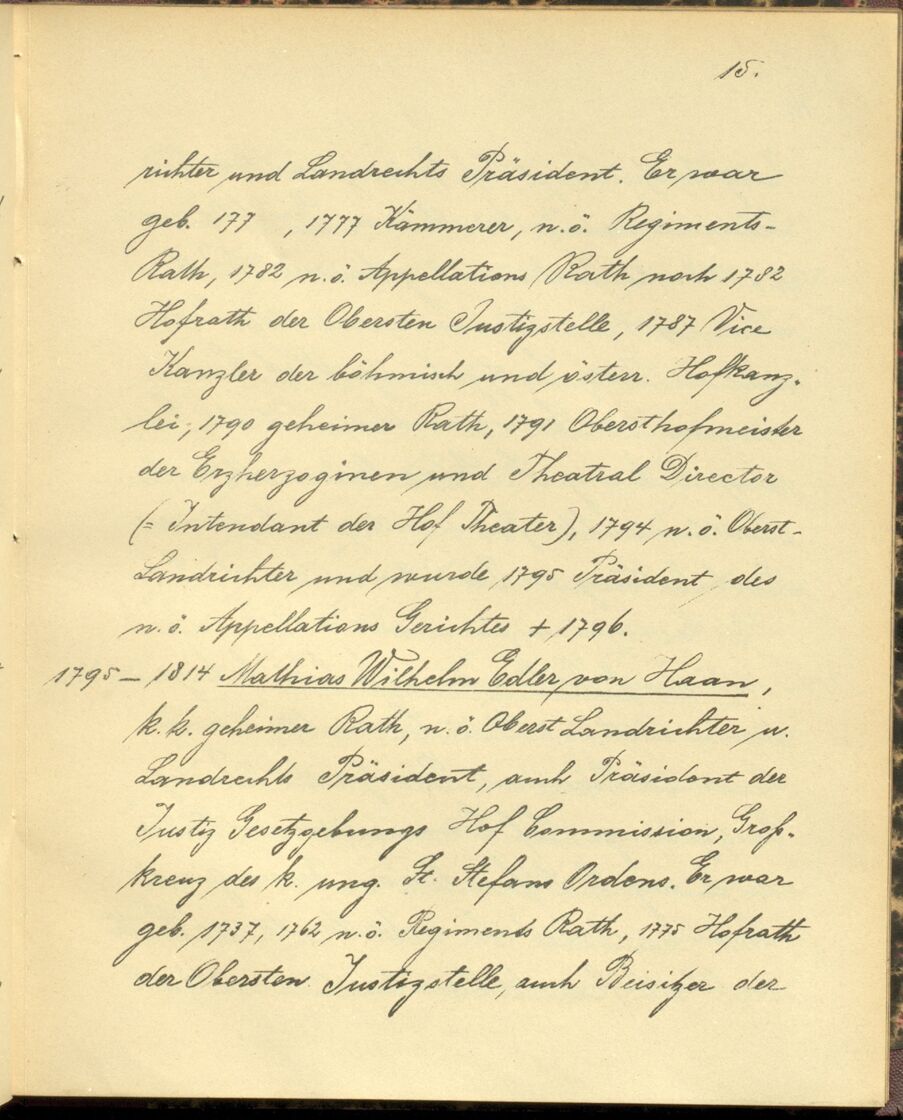 15.
richter und Landrechts Präsident. Er war
geb. 177 , 1777 Kämmerer, n. ö. Regiments-
Rath, 1782 n. ö. Appellations Rath noch 1782
Hofrath der Obersten Justizstelle, 1787 Vice
Kanzler der böhmisch und österr. Hofkanz-
lei, 1790 geheimer Rath, 1791 Obersthofmeister
der Erzherzoginen und Theatral Director
(= Intendant der Hof Theater), 1794 n. ö. Oberst-
Landrichter und wurde 1795 Präsident des
n. ö. Appellations Gerichtes + 1796.
1795 – 1814 Mathias Wilhelm Edler von Haan,
k. k. geheimer Rath, n. ö. Oberst Landrichter u.
Landrechts Präsident, auch Präsident der
Justiz Gesetzgebungs Hof Commission, Groß-
kreuz des k. ung. St. Stefans Ordens. Er war
geb. 1737, 1762 n. ö. Regiments Rath, 1775 Hofrath
der Obersten Justizstelle, auch Beisitzer der